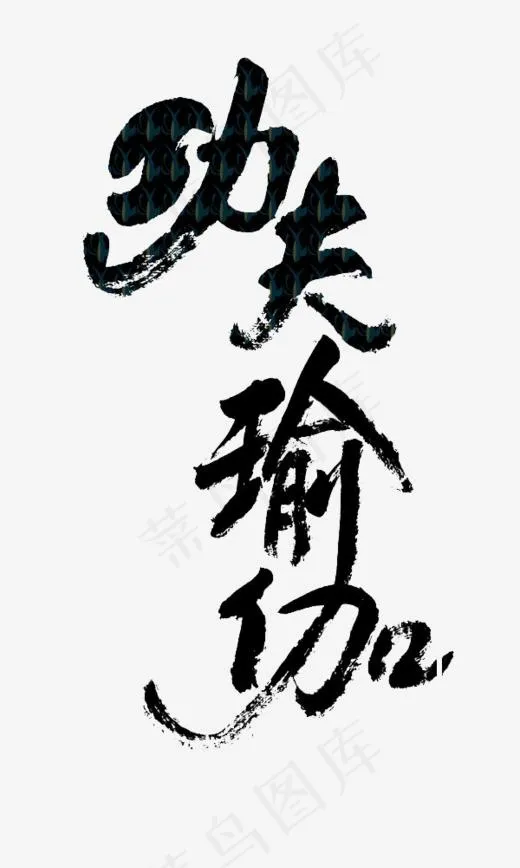 功夫
瑜伽
菜鸟图库
菜鸟图库
菜鸟图库